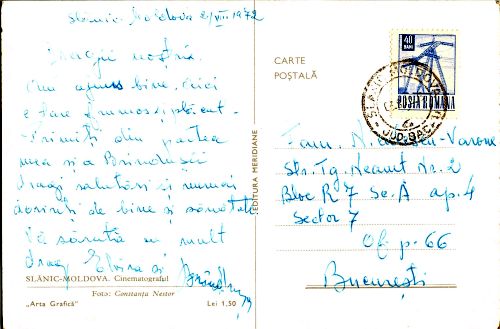 Slănic Moldova 2/VIII 1972
Dragii noștri
Am ajuns bine. Aici
e fare frumos și plăcut.
Primiți din partea
mea și a Brîndușii
dragi salutări și numai
dorinți de bine și sănătate
Vă sărută cu mult
drag Elvira și
SLĂNIC-MOLDOVA. Cinematograful
Foto: Constanța Nestor
„Arta Grafică"
Lei 1,50
EDITURA MERIDIANE
CARTE
POȘTALĂ
40
BANI
POSTA ROMANA
JUD. BAC
Fam.
Str. Tg. Neamț Nr. 2
Bloc R 7 Sc. A ap. 4
Sector 7
Of. p. 66
București